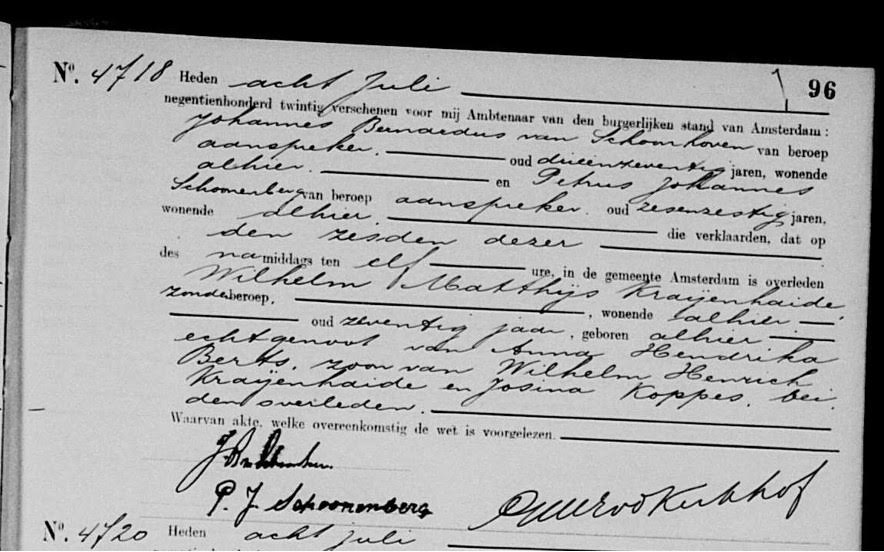 Nº. 4718 Heden acht Juli 96
negentienhonderd twintig verschenen voor mij Ambtenaar van den burgerlijken stand van Amsterdam:
Johannes Bernardus van Schoonhoven van beroep
aanspreker, oud drieenzeventig jaren, wonende
alhier. en Petrus Johannes
Schoonenberg van beroep aanspreker. oud zesenzestig jaren,
wonende alhier, die verklaarden, dat op
den zesden dezer
des namiddags ten elf ure, in de gemeente Amsterdam is overleden
Wilhelm Matthijs Kraijenhaide,
zonder beroep, , wonende alhier.
oud zeventig jaar, geboren alhier
echtgenoot van Anna Hendrika
Berts. zoon van Wilhelm Henrich
Kraijenhaide en Josina Koppes, bei
den overleden.
Waarvan akte, welke overeenkomstig de wet is voorgelezen.
P. J. Schoonenberg
Kerkhof
Nº. 4720 Heden acht juli